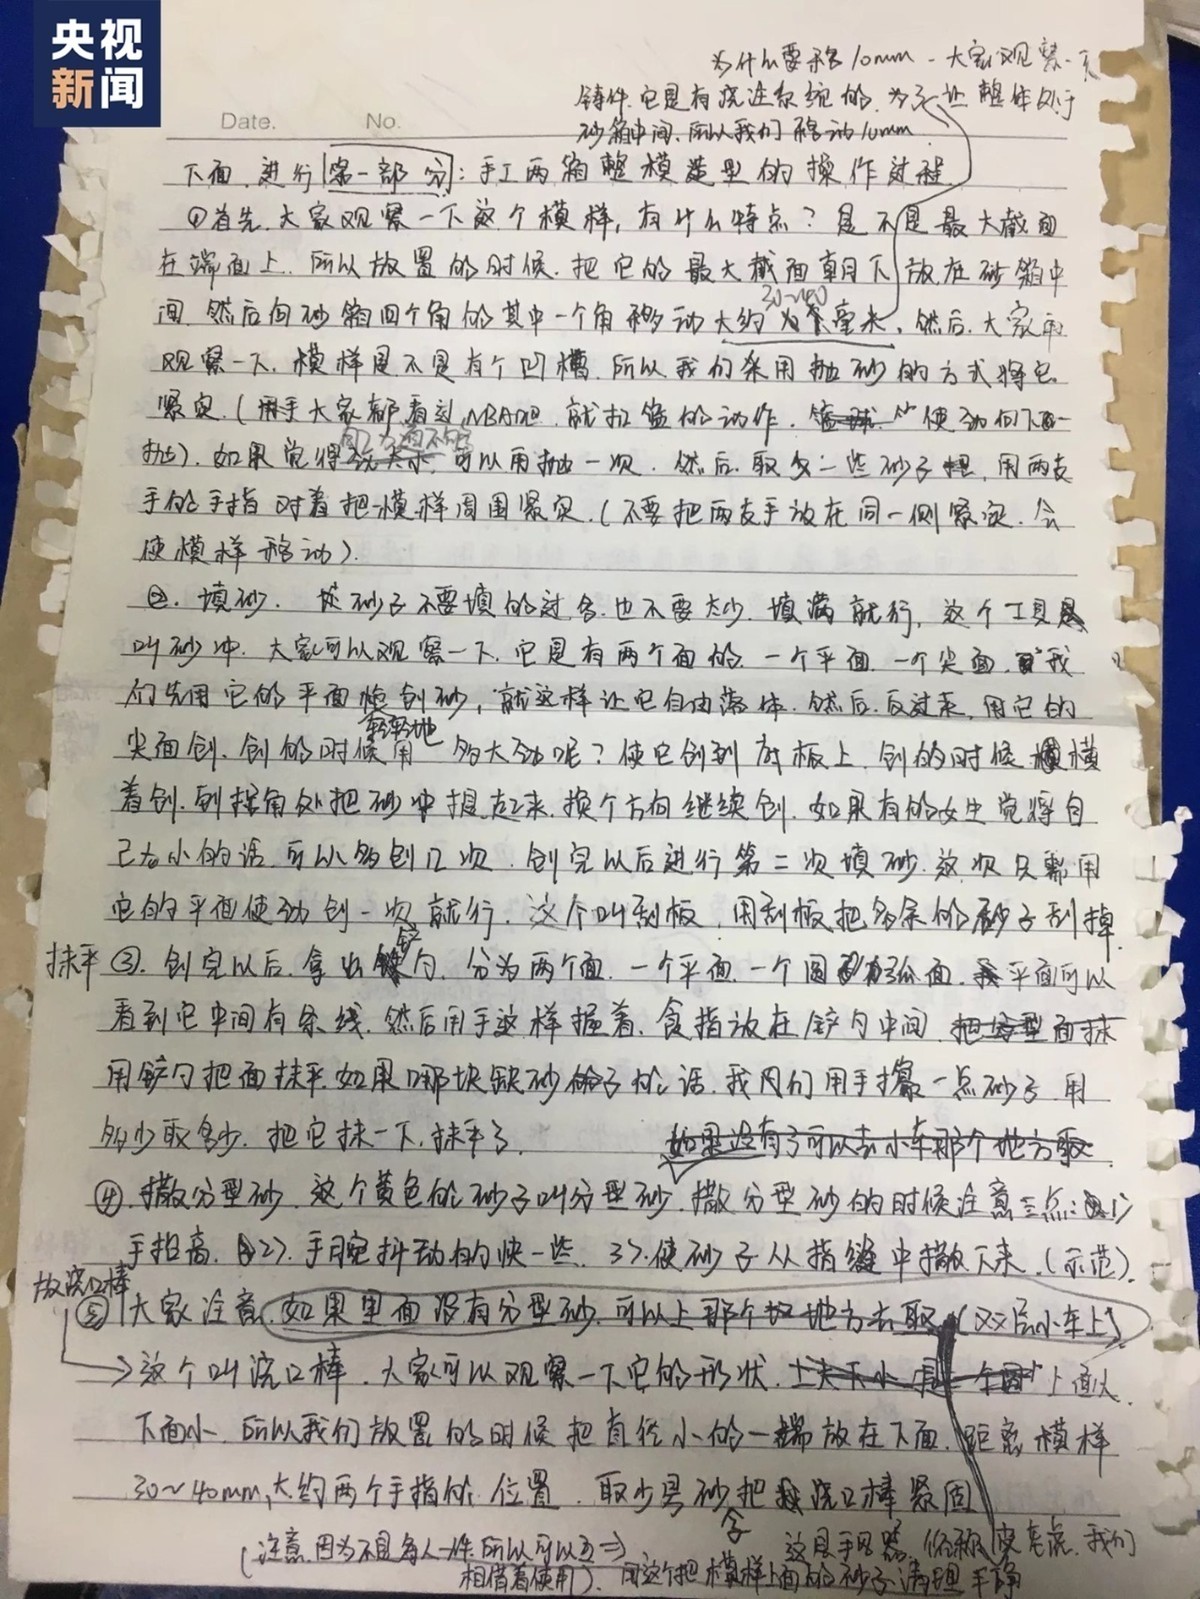 央视
新闻
为什么要移10mm-大家观察一下
铸件.它是有浇注系统的.为了让整体处于
砂箱中间.所以我们移动10mm
Date. No.
下面.进行第一部分:手工两箱整模造型的操作过程
①首先.大家观察一下这个模样,有什么特点?是不是最大截面
在端面上.所以放置的时候.把它的最大截面朝下放在砂箱中
30~40
间.然后向砂箱四个角的其中一个角移动大约 毫米.然后.大家再
观察一下.模样是不是有个凹槽.所以.我们采用抛砂的方式将它
紧实.(大家都看过NBA吧.就扣篮的动作.使劲向下一
抛).如果觉得 可以再抛一次.然后.取少一些砂子,用两支
手的手指对着把模样周围紧实.(不要把两支手放在同一侧紧实.会
使模样移动).
②.填砂.砂子不要填的过多.也不要太少.填满就行,这个工具
叫砂冲.大家可以观察一下.它是有两个面的.一个平面.一个尖面.我
们先用它的平面 砂,就这样让它自由落体.然后.反过来,用它的
轻轻地
尖面刨.刨的时候用多大劲呢?使它刨到底板上.刨的时候横
着刨.到拐角处把砂冲提起来.换个方向继续刨.如果有的女生觉得自
己力小的话.可以多刨几次.刨完以后进行第二次填砂.这次只需用
它的平面使劲刨一次就行.这个叫刮板,用刮板把多余的砂子刮掉.
抹平③.刨完以后.拿出铲勺.分为两个面.一个平面.一个圆弧面.平面可以
看到它中间有条线.然后用手这样握着.食指放在铲勺中间.把分型面抹
用铲勺把面抹平.如果哪块缺砂子的话.我们用手撮一点砂子.用
多少取多少.把它抹一下.抹平了. 如果没有了可以去小车那个地方取
④.撒分型砂.这个黄色的砂子叫分型砂.撒分型砂的时候注意三点:1)
手抬高.2).手腕抖动的快一些.3).使砂子从指缝中撒下来.(示范).
放浇口棒
⑤大家注意.如果里面没有分型砂.可以上那个 地方去取.(双后小车上)
这个叫浇口棒.大家可以观察一下它的形状.上面大
下面小.所以我们放置的时候把直径小的一端放在下面.距离模样
30~40mm,大约两个手指的位置.取少量砂把浇口棒紧固
(注意.因为不是每人一件.所以可以互
相借着使用).用这个把模样上面的砂子清理干净
这是手风器.俗称皮老虎.我们